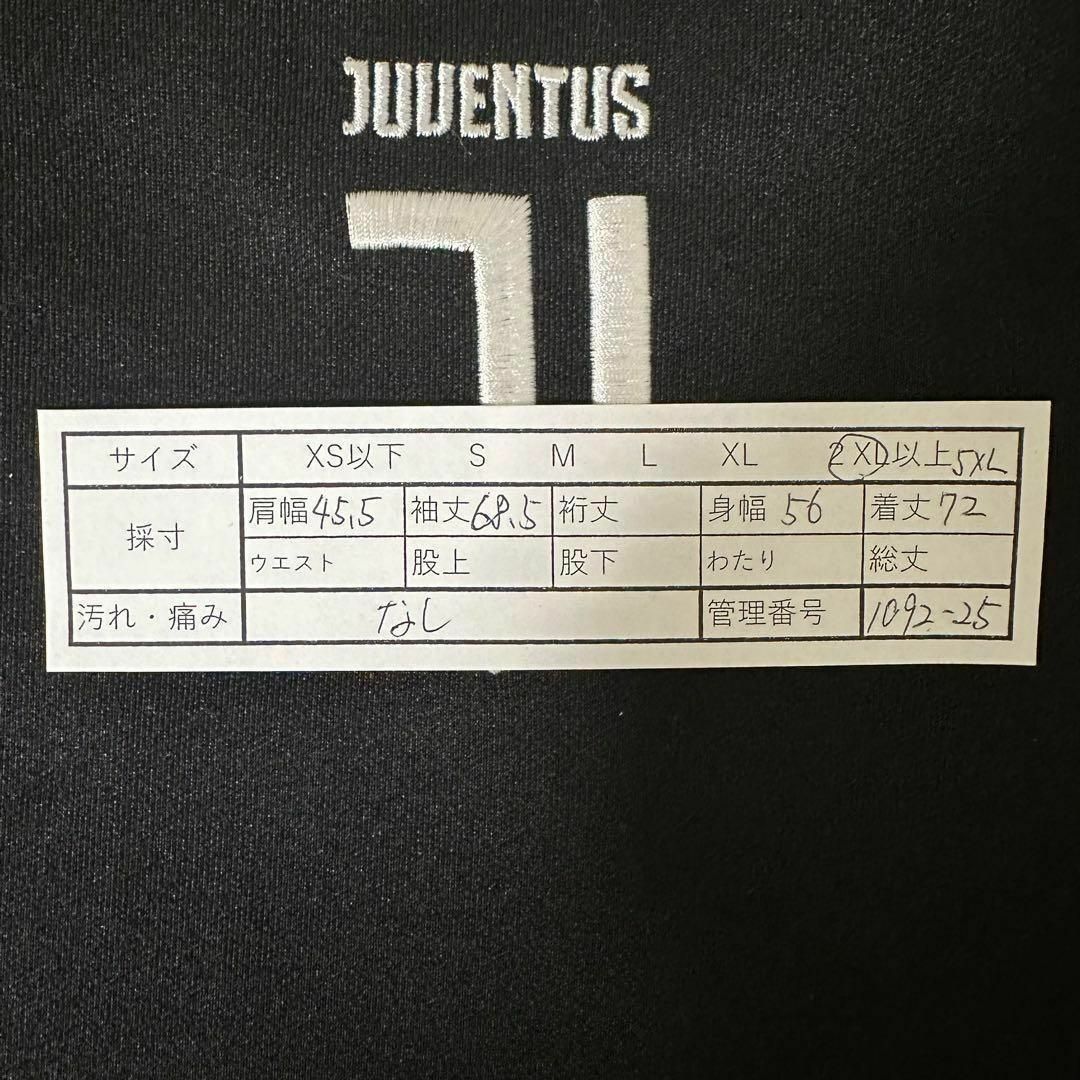 JUVENTUS
サイズ XS以下 S M L XL 2XL以上 5XL
採寸 肩幅 45.5 袖丈 68.5 裄丈 身幅 56 着丈 72
ウエスト 股上 股下 わたり 総丈
汚れ・痛み なし 管理番号 1092-25